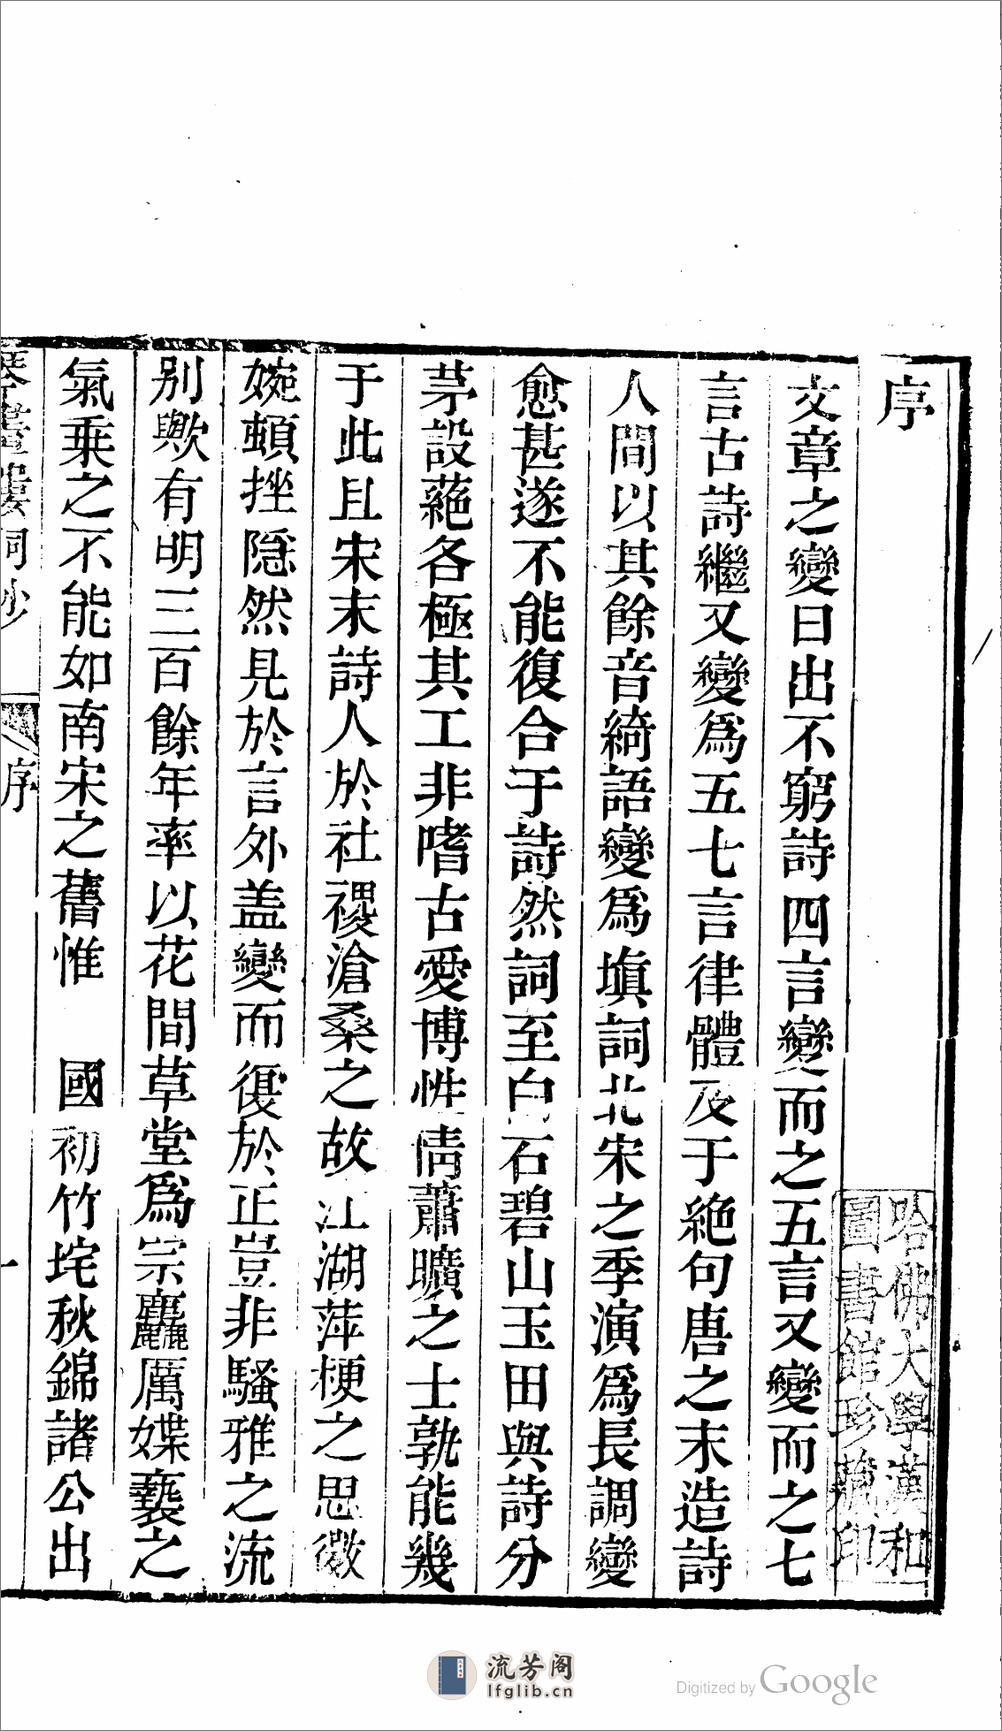 序
文章之變日出不窮詩四言變而之五言又變而之七
言古詩繼又變爲五七言律體及于絶句唐之末造詩
人間以其餘音綺語變爲塡詞北宋之季演爲長調變
愈甚遂不能復合于詩然詞至白石碧山玉田與詩分
茅設蕝各極其工非嗜古愛博性情蕭曠之士孰能幾
于此且宋末詩人於社稷滄桑之故江湖萍梗之思微
婉頓挫隱然見於言外盖變而復於正豈非騷雅之流
别歟有明三百餘年率以花間草堂爲宗麤厲媟褻之
氣乗之不能如南宋之舊惟　國初竹垞秋錦諸公出
琴畫樓詞鈔
序
一
哈佛大學漢和
圖書館珍藏印
流芳阁
lfglib.cn
Digitized by Google